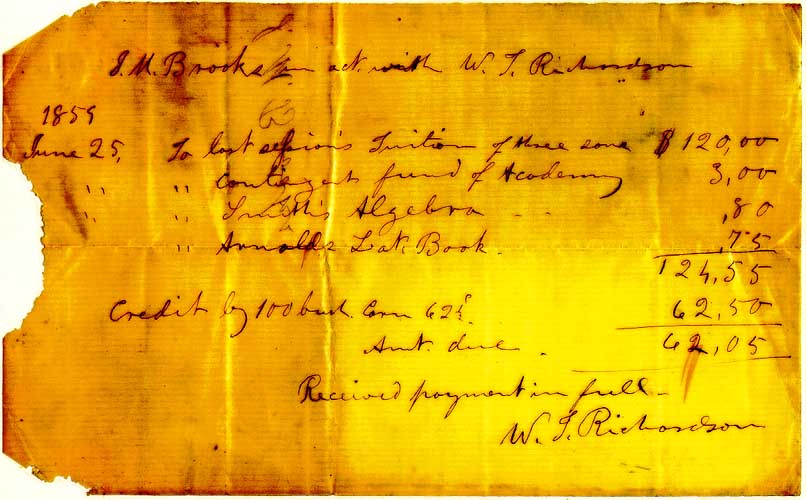 J. M. Brooks in act. with W. T. Richardson
1859
June 25, To last session's Tuition of three sons $ 120,00
" " contingent fund of Academy 3,00
" " Smith's Algebra ,80
" Arnolds Lat. Book. ,75
124,55
Credit by 100 bush. Corn 62½ 62,50
Amt. due. 62,05
Received payment in full -
W. T. Richardson